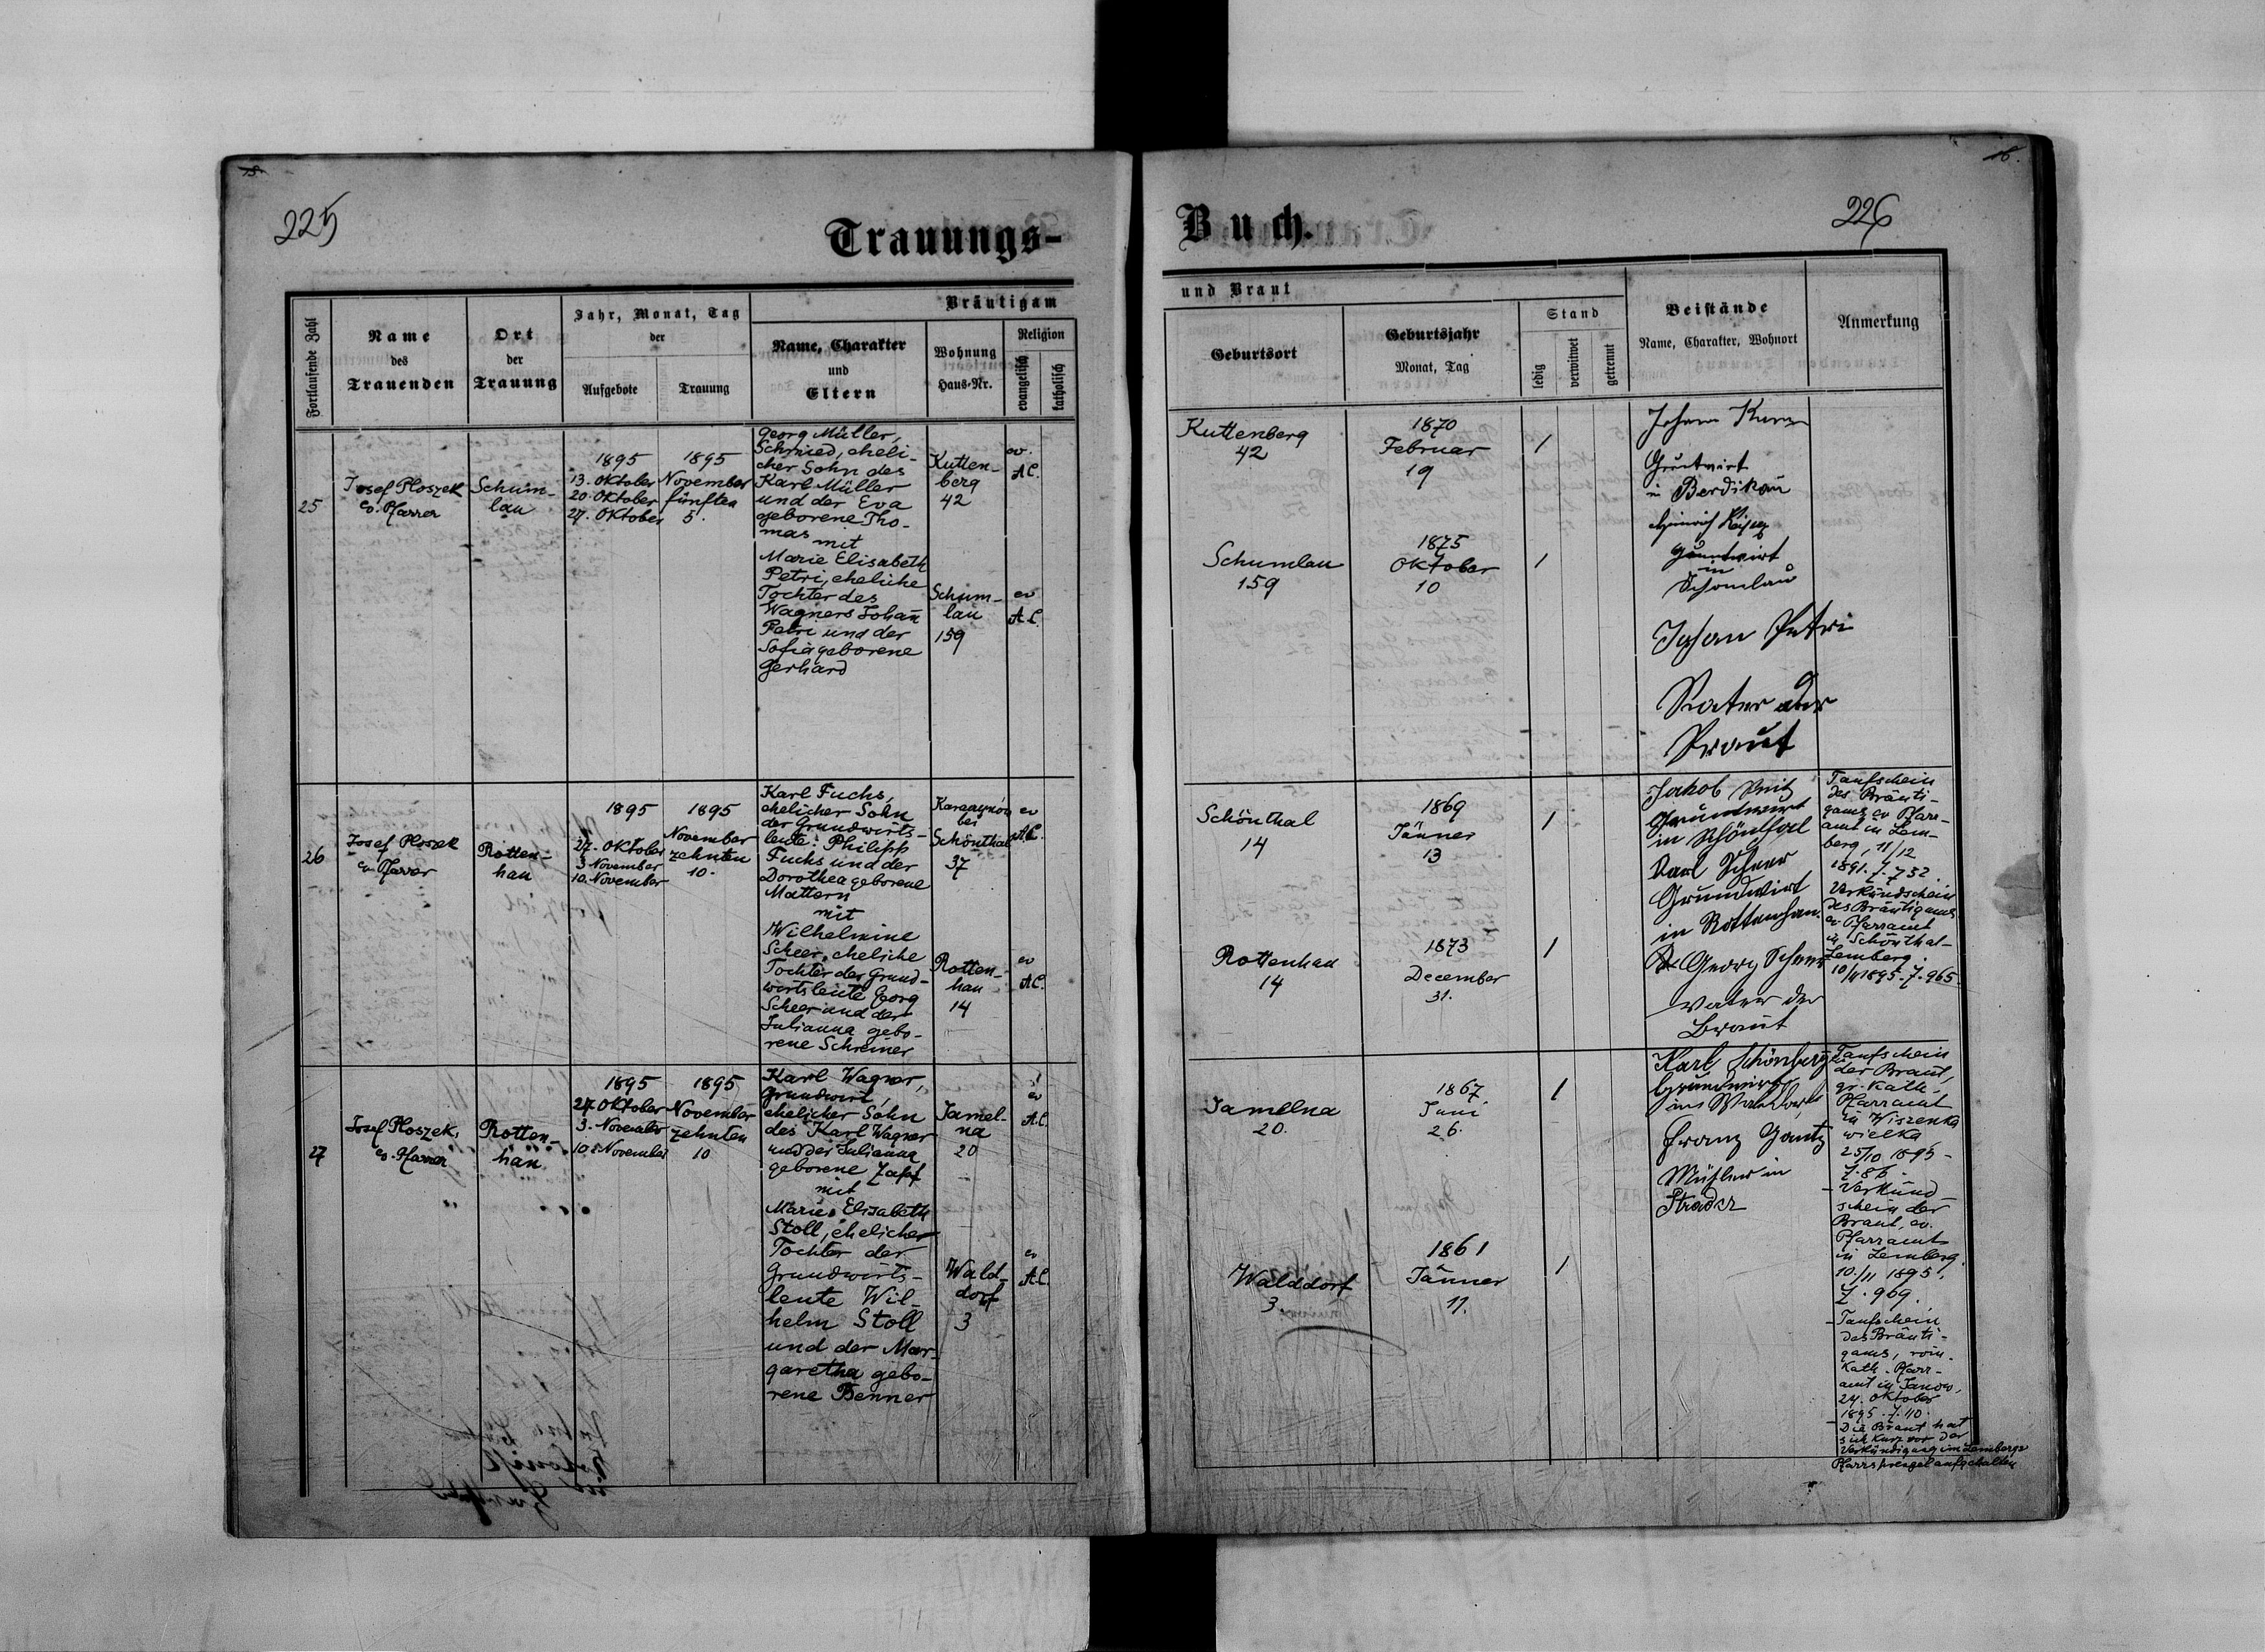 225
Trauungs-
Fortlaufende Zahl
Name
des
Trauenden
Ort
der
Trauung
Jahr, Monat, Tag
der
Aufgebote
Trauung
Bräutigam
Name, Charakter
und
Eltern
Wohnung
Haus-Nr.
Religion
evangelisch
katholisch
25
Josef Ploszek
ev. Pfarrer
Schum-
lau
1895
13. Oktober
20. Oktober
27. Oktober
1895
November
fünften
5.
Georg Müller,
Schmied, eheli-
cher Sohn des
Karl Müller
und der Eva
geborene Tho-
mas
mit
Marie Elisabeth
Petri, eheliche
Tochter des
Wagners Johann
Petri und der
Sofia geborene
Gerhard
Kutten-
berg
42
ev.
A.C.
Schum-
lau
159
ev
A.C.
26
Josef Ploszek
ev. Pfarrer
Rotten-
han
1895
27. Oktober
3 November
10. November
1895
November
zehnten
10.
Karl Fuchs,
ehelicher Sohn
der Grundwirts-
leute: Philipp
Fuchs und der
Dorothea geborene
Mattern
mit
Wilhelmine
Scheer, eheliche
Tochter der Grund-
wirtsleute Georg
Scheer und der
Julianna gebo-
rene Schreiner
bei
Schönthal
37
ev
A.C.
Rotten-
han
14
ev
A.C.
27
Josef Ploszek,
ev. Pfarrer
Rotten-
han
1895
27. Oktober
3. November
10. November
1895
November
zehnten
10
Karl Wagner,
Grundwirt,
ehelicher Sohn
des Karl Wagner
und der Julianna
geborene Zapf
mit
Marie Elisabeth
Stoll, ehelicher
Tochter der
Grundwirts-
leute Wil-
helm Stoll
und der Mar-
garetha gebo-
rene Benner
Jamel-
na
20
ev
A.C.
Wald-
dorf
3
ev
A.C.
226
Buch.
und Braut
Geburtsort
Geburtsjahr
Monat, Tag
Stand
ledig
verwitwet
getrennt
Beistände
Name, Charakter, Wohnort
Anmerkung
Kuttenberg
42
1870
Februar
19
1
Johann
Grundwirt
in Berdikau
Heinrich
Grundwirt
in
Schomlau
Schumlau
159
1875
Oktober
10
1
Johan Petri
Vater der
Braut
Schönthal
14
1869
Jänner
13
1
Jakob
Grundwirt
in Schönthal
Karl Scheer
Grundwirt
in Rottenhan.
Georg Scheer
Vater der
Braut
Taufschein
des Bräuti-
gams ev Pfarr-
amt in Lem-
berg, 11/12
1891. Z. 752.
Verkündschein
des Bräutigams
ev. Pfarramt
in Schönthal-
Lemberg.
10/11 1895. Z. 965.
Rottenhan
14
1873
December
31.
1
Jamelna
20.
1867
Juni
26.
1
Karl Schönberg
Grundwirt
in Walddorf
Franz Gantz
Müller in
Stradcz
Taufschein
der Braut,
gr.-kath.
Pfarramt
in Wiszenka
wielka
25/10 1895-
Z. 86.
- Verkünd-
schein der
Braut, ev.
Pfarramt
in Lemberg.
10./11 1895,
Z. 969.
- Taufschein
des Bräuti-
gams, röm.
kath. Pfarr-
amt in Janow,
24. Oktober
1895. Z. 110.
- Die Braut hat
sich kurz vor der
Verkündigung im Lemberger
Pfarrsprengel aufgehalten
Walddorf
3.
1861
Jänner
11.
1